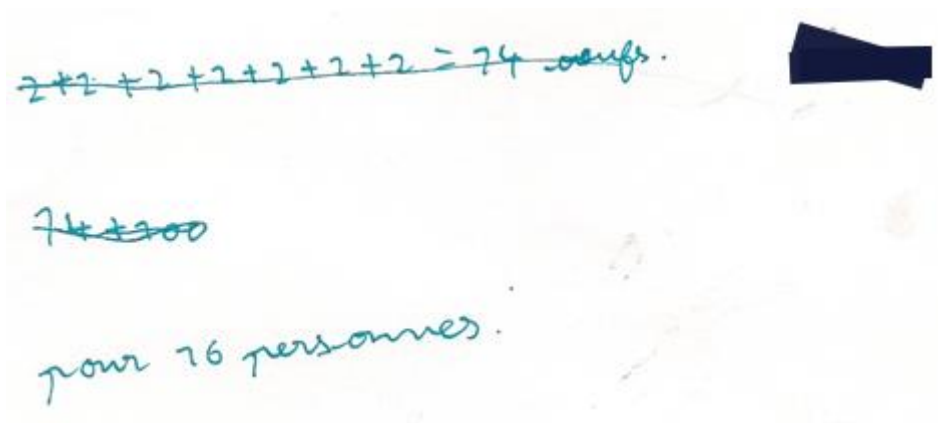 2+2+2+2+2+2+2 = 14 oeufs.
14+100
pour 16 personnes.